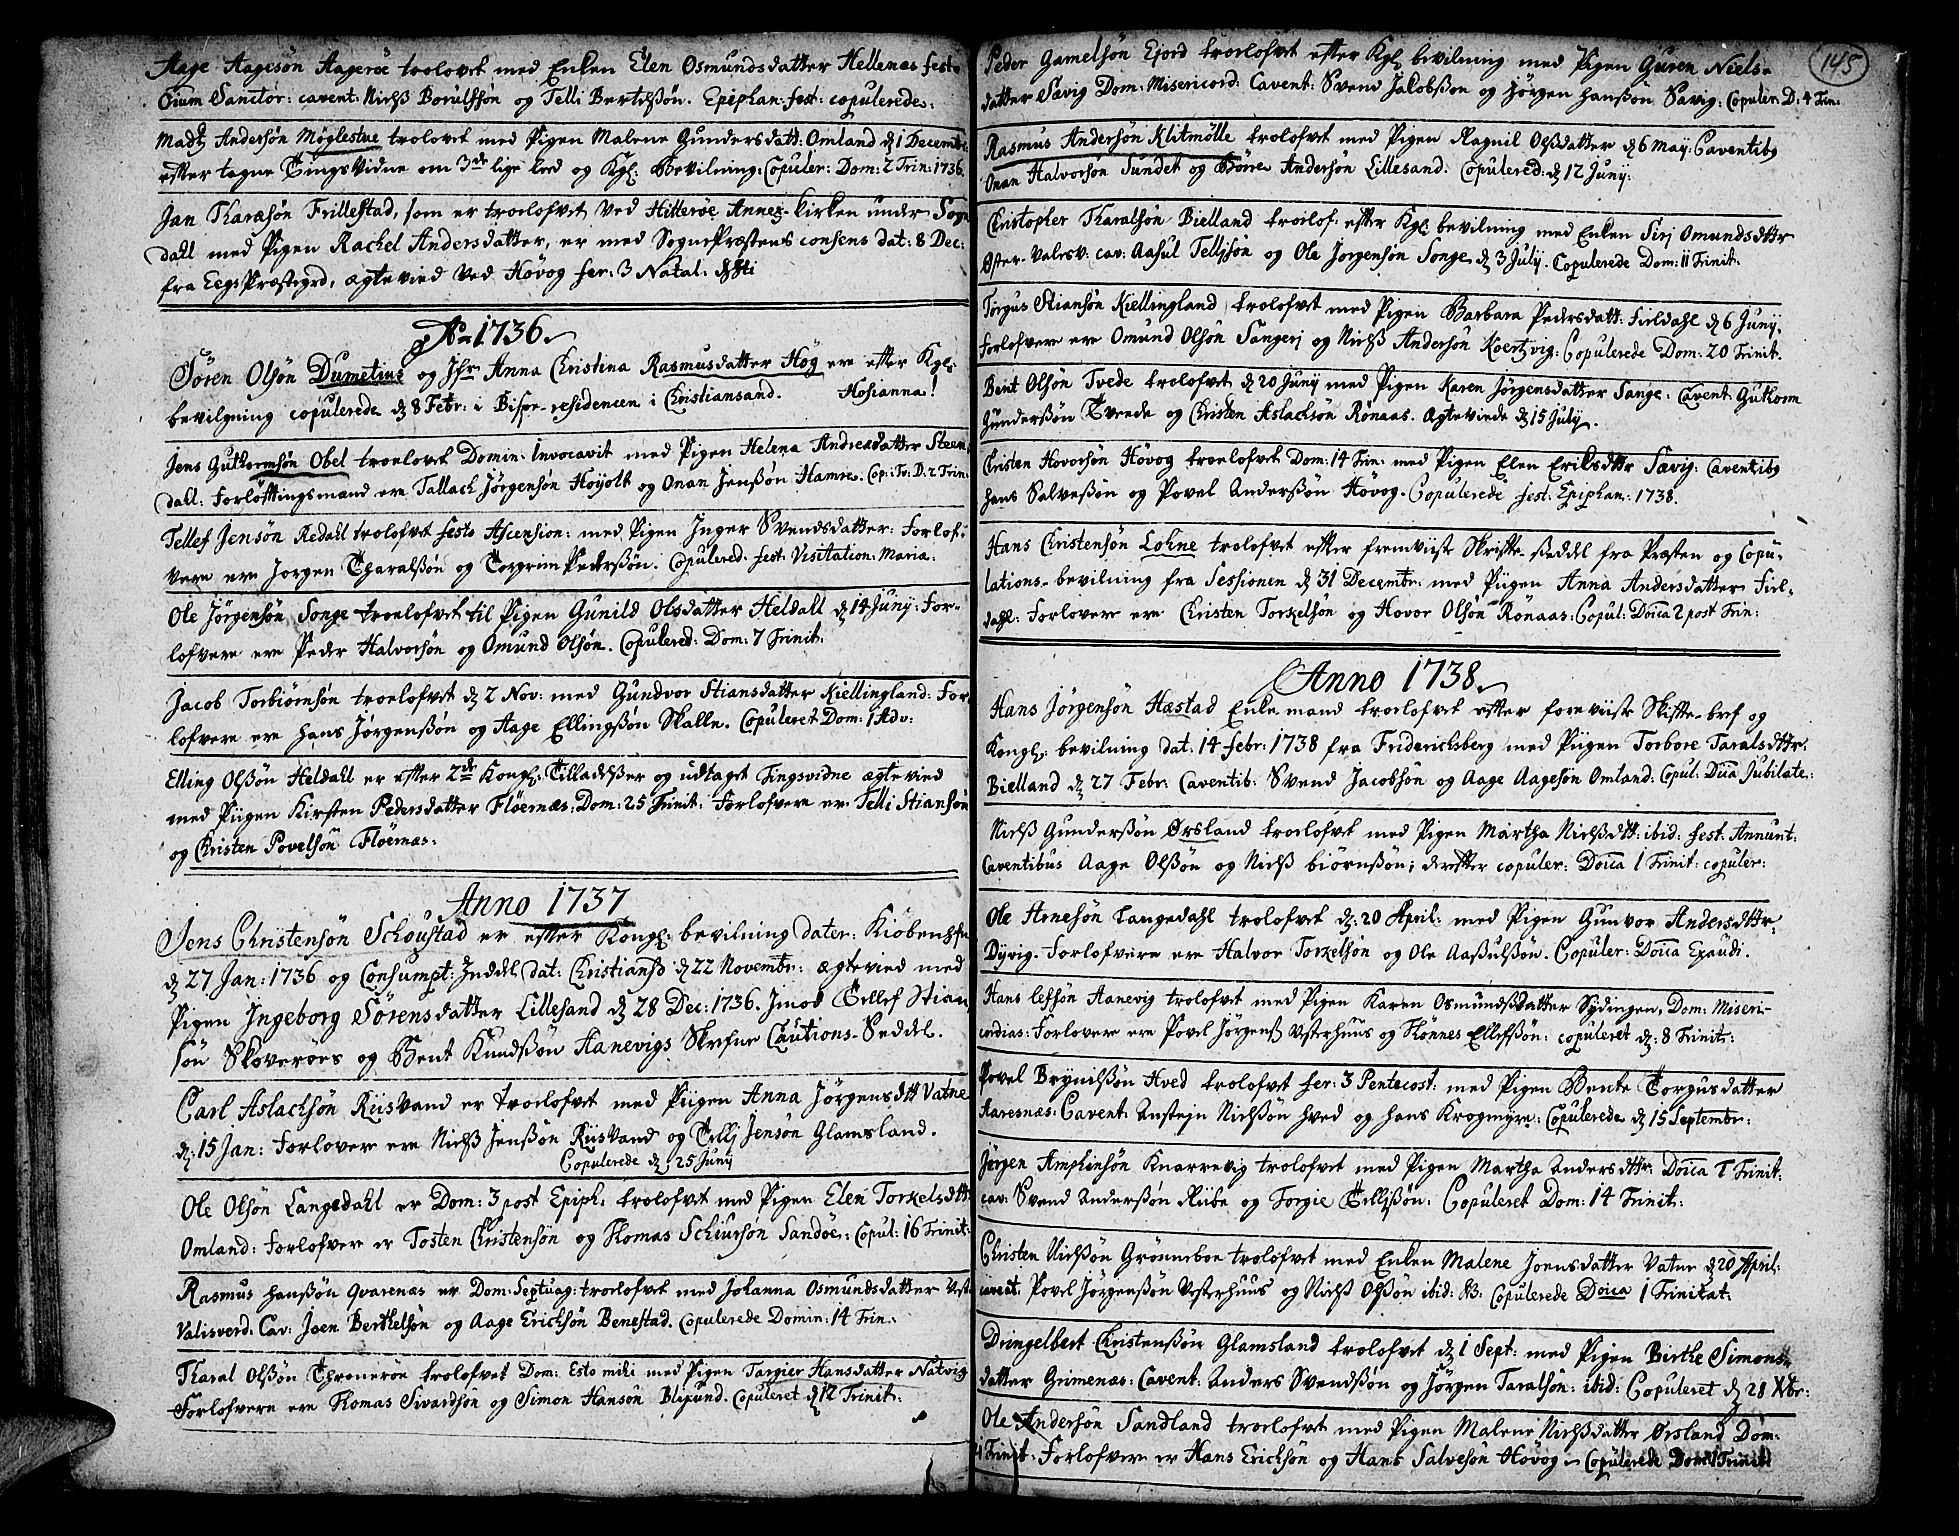 Aage Aagesøn Aagerøe troelovet med Enken Elen Osmundsdatter Hellenæs festo
Oium Sanctor: cavent: Nielß Borulfsøn og Telli Bertelßøn. Epiphan: fest: copuleredes:
Madtz Andersøn Møglestue trolovet med Pigen Malene Gundersdatt: Omland d 1 Decembr:
efter tagne Tingsvidne om 3de lige led og Kgl: Bevilning: Copuler: Dom: 2 Trin: 1736.
Jan Tharalsøn Frillestad, som er troelofvet ved Hitterøe Annex-kirken under Sogn
dall med Pigen Rachel Andersdatter, er med SognePræstens consens dat: 8 Dec:
fra Eegs Præstegrd, ægtevied ved Høvog fer: 3 Natal:
Ao 1736.
Søren Olsøn Dumetius og Jfr Anna Christina Rasmusdatter Høg ere efter Kgl:
bevilgning copulerede d 8 Febr: i Bispe-residencen i Christiansand. Hosianna!
Jens Guttormsøn Obel troelovet Domin: Invocavit med Pigen Helena Andreasdatter Steen
dall: Forløftningsmænd ere Tallach Jörgensön Höyolt og Onan Jenßön Hamre. Cop: Fr. D: 2 Trin
Tellef Jensøn Redahl trolofvet festo Ascension: med Pigen Inger Svendsdatter: Forlof-
vere ere Jorgen Tharalßøn og Torgrim Pederßøn. Copulered: fest: Visitation: Maria.
Ole Jörgensøn Songe troelofvet til Pigen Gunild Olsdatter Heldall d 14 Junij: For-
lofvere ere Peder Halvorsøn og Omund Olsøn. Copulered: Dom: 7 Trinit:
Jacob Torbiørnsøn troelofvet d 2 Nov: med Gundvor Stiansdatter Kiellingland: For-
lofvere ere Hans Jørgenßøn og Aage Ellingßøn Skalle. Copuleret Dom: 1 Adv:
Elling Olßøn Heldahl er efter 2de Kongl: Tilladelßer og udtaget Tingsvidne ægteviet
med Piigen Kirsten Pedersdatter Fløernæs: Dom: 25 Trinit: Forlofvere er Telli Stiansøn
og Christen Povelsøn Fløernæs:
Anno 1737
Jens Christensøn Schoustad er efter Kongl: bevilning dater: Kiøbenhfn
d 27 Jan: 1736 og Consumpt: Zeddel dat: Christiansd d 22 Novembr: ægteviet med
Pigen Ingeborg Sørensdatter Lillesand d 28 Dec: 1736. Imod Tellef Stian
søn Skoverøes og Bent Knudßøn Aanevigs Skrefne Cautions-Seddel.
Carl Aslachsøn Riisvand er troelofvet med Piigen Anna Jørgensdtt Vatne
d: 15 Jan: Forlovere ere Nielß Jenßøn Riisvand og Tellj Jensøn Glamsland.
Copulerede d: 25 Junij
Ole Olsøn Langedahl er Dom: 3 post Epiph: trolofvet med Pigen Elen Torkelsdtt:
Omland: Forlofver er Tosten Christensøn og Thomas Schiursøn Sandøe: Copul: 16 Trinit:
Rasmus Hanßøn Qvarenæs er Dom: Septuag: trolofvet med Johanna Osmundsdatter Vest
Valisverd: Cav: Joen Berthelsøn og Aage Erichsøn Benestad. Copulerede Domin: 14 Trin:
Tharal Olßøn Thronerøe trolofvet Dom: Esto mihi med Pigen Targier Hansdatter Natvig
Forlofvere ere Thomas Sivardsøn og Simon Hansøn Blixund. Copuleret d 12 Trinit:
145
Peder Gamelsøn Ejord troelofvet efter Kgl bevilning med Pigen Guren Niels-
datter Savig Dom: Misericord: Cavent: Svend Jacobßøn og Jörgen Hanßøn Savig: Copuler: D: 4 Trin:
Rasmus Andersøn Klitmølle trolofvet med Pigen Ragnil Olßdatter d 6 May: Caventibg
Onan Halvorsøn Sundet og Børre Andersøn Lillesand. Copulered: d 12 Junij:
Christopher Tharalsøn Bielland troelof: efter Kgl: bevilning med Enken Sirj Omundsdttr
Øster-Valesv: cav: Aasul Telljsøn og Ole Jørgensøn Songe d 3 July. Copulerede Dom: 11 Trinit:
Torgus Stiansøn Kiellingland trolofvet med Pigen Barbara Pedersdatt: Firldahl d 6 Junij.
Forlofvere ere Omund Olsøn Sangerj og Nielß Andersøn Koertzvig: Copulerede Dom: 20 Trinit.
Bent Olsøn Tvede trolofvet d 20 Junij med Pigen Karen Jørgensdatter Sange: Cavent: Gutborm
Gunderßøn Tvede og Christen Aslachsøn Rönaas. Ægteviede d 15 July.
Christen Hovorsøn Høvog troelofvet Dom: 14 Trin: med Pigen Elen Eriksdttr Savig: Caventibg
Hans Salveßøn og Povel Anderßøn Høvog. Copulerede fest: Epiphan: 1738.
Hans Christensøn Lohne trolofvet efter fremviiste Skifte-Zeddel fra Præsten og Copu-
lations-bevilning fra Sessionen d 31 Decembr: med Piigen Anna Andersdatter Firl-
dahl: Forlovere ere Christen Torkelsøn og Hovor Olsøn Rönaas: Copul: Doica 2 post Trin:
Anno 1738
Hans Jörgensøn Hæstad Enkemand trolofvet efter foreviiste Skifte-bref og
Kongl: bevilning dat: 14 febr: 1738 fra Friderichsberg med Piigen Torbore Taralsdttr.
Bielland d 27 Febr: Caventib: Svend Jacobsøn og Aage Aagesøn Omland: Copul: Dica Jubilate:
Nielß Gunderßøn Ørsland trolofvet med Pigen Martha Nielßdtt: ibid: fest: Annunt:
Caventibus Aage Olßøn og Nielß biørnßøn; derefter copuler: Doica 1 Trinit: copuler:
Ole Arnesøn Langedahl trolofvet d: 20 April: med Pigen Gunvor Andersdttr
Dyvig. Forlofvere ere Halvor Torkelsøn og Ole Aasulßøn. Copuler: Doica Exaudi.
Hans Lefsøn Aanevig trolofvet med Pigen Karen Osmundßdatter Sydingen, Dom: Miseri-
cordias: Forlovere ere Povel Jörgenß Vesterhuus og Thönnes Ellefßøn: copuleret d: 8 Trinit:
Povel Brynilßøn Hved trolofvet fer: 3 Pentecost: med Pigen Bente Torgusdatter
Aaresnæs: Cavent: Anstejn Nielßøn Hved og Hans Krogmyre: Copulerede d 15 Septembr:
Jørgen Amphinsøn Knarrevig trolofvet med Pigen Martha Andersdttr: Doica T Trinit:
cav: Svend Anderßøn Riibe og Torgie Telljßøn: Copuleret Dom: 14 Trinit:
Christen Nielßøn Grønneboe trolofvet med Enken Malene Joensdatter Vatne d 20 April:
cavent: Povel Jörgenßøn Vesterhuus og Nielß Olßøn ibid: Copulerede Doica 1 Trinitat:
Dyngelbert Christenßøn Glamsland trolofvet d 1 Sept: med Pigen Birthe Simons-
datter Grimenæs: Cavent: Anders Svendßøn og Jørgen Taralsøn: ibid: Copuleret d 28 Xbr:
Ole Andersøn Sandland troelofvet med Pigen Malene Nielßdatter Ørsland Dom:
Trinit: Forlofvere er Hans Erichsøn og Hans Salvesøn Høvog. Copulerede Dom: Trinit: